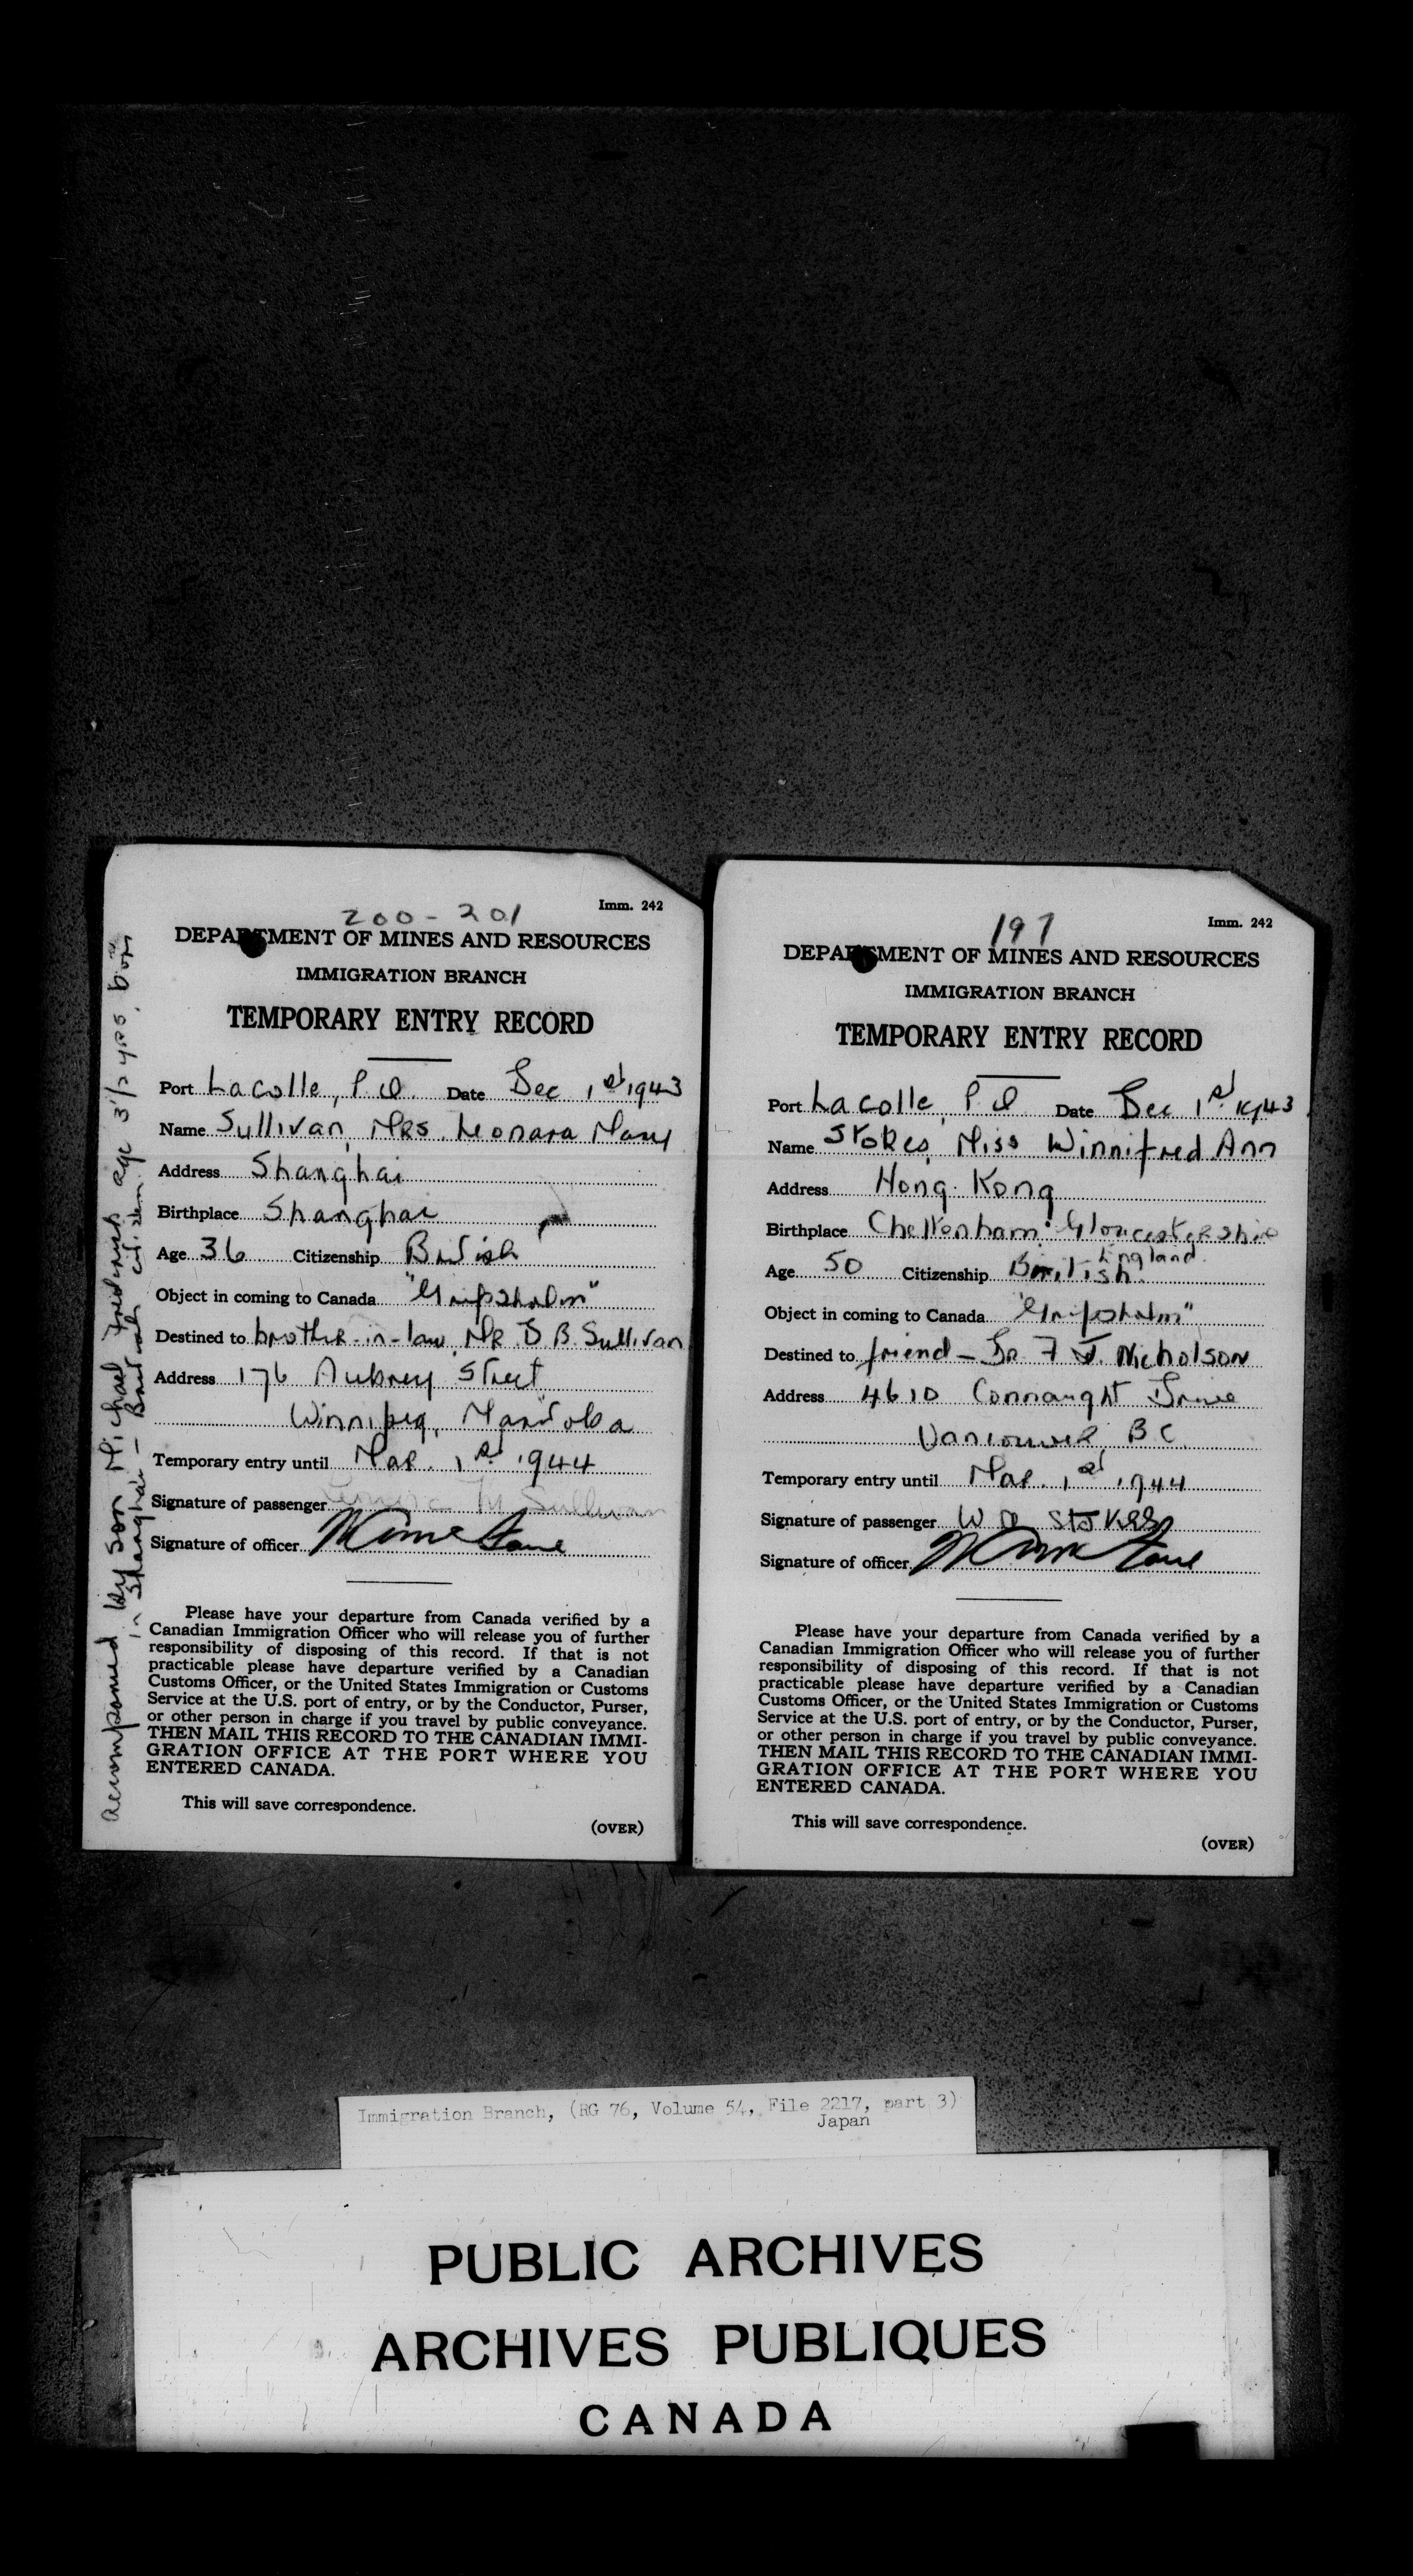 200-201
Imm. 242
DEPARTMENT OF MINES AND RESOURCES
IMMIGRATION BRANCH
TEMPORARY ENTRY RECORD
Port Lacolle, P.Q. Date Dec 1st 1943
Name Sullivan, Mrs. Leonara Mary
Address Shanghai
Birthplace Shanghai
Age 36 Citizenship British
Object in coming to Canada "Gripsholm"
Destined to brother-in-law, Mr. D B. Sullivan
Address 176 Aubrey Street
Winnipeg, Manitoba
Temporary entry until Mar. 1st 1944
Signature of passenger M Sullivan
Signature of officer
Please have your departure from Canada verified by a
Canadian Immigration Officer who will release you of further
responsibility of disposing of this record. If that is not
practicable please have departure verified by a Canadian
Customs Officer, or the United States Immigration or Customs
Service at the U.S. port of entry, or by the Conductor, Purser,
or other person in charge if you travel by public conveyance.
THEN MAIL THIS RECORD TO THE CANADIAN IMMI-
GRATION OFFICE AT THE PORT WHERE YOU
ENTERED CANADA.
This will save correspondence.
(OVER)
accompanied by son Michael Frederick age 3 1/2 yrs, born
in Shanghai - British citizen
197
Imm. 242
DEPARTMENT OF MINES AND RESOURCES
IMMIGRATION BRANCH
TEMPORARY ENTRY RECORD
Port Lacolle, P Q Date Dec 1st 1943
Name Stokes, Miss Winnifred Ann
Address Hong Kong
Birthplace Cheltenham Gloucestershire
England
Age 50 Citizenship British
Object in coming to Canada "Gripsholm"
Destined to friend - Dr F J. Nicholson
Address 4610 Connaught Drive
Vancouver, B C.
Temporary entry until Mar. 1st 1944
Signature of passenger W A Stokes
Signature of officer
Please have your departure from Canada verified by a
Canadian Immigration Officer who will release you of further
responsibility of disposing of this record. If that is not
practicable please have departure verified by a Canadian
Customs Officer, or the United States Immigration or Customs
Service at the U.S. port of entry, or by the Conductor, Purser,
or other person in charge if you travel by public conveyance.
THEN MAIL THIS RECORD TO THE CANADIAN IMMI-
GRATION OFFICE AT THE PORT WHERE YOU
ENTERED CANADA.
This will save correspondence.
(OVER)
Immigration Branch, (RG 76, Volume 54, File 2217, part 3)
Japan
PUBLIC ARCHIVES
ARCHIVES PUBLIQUES
CANADA